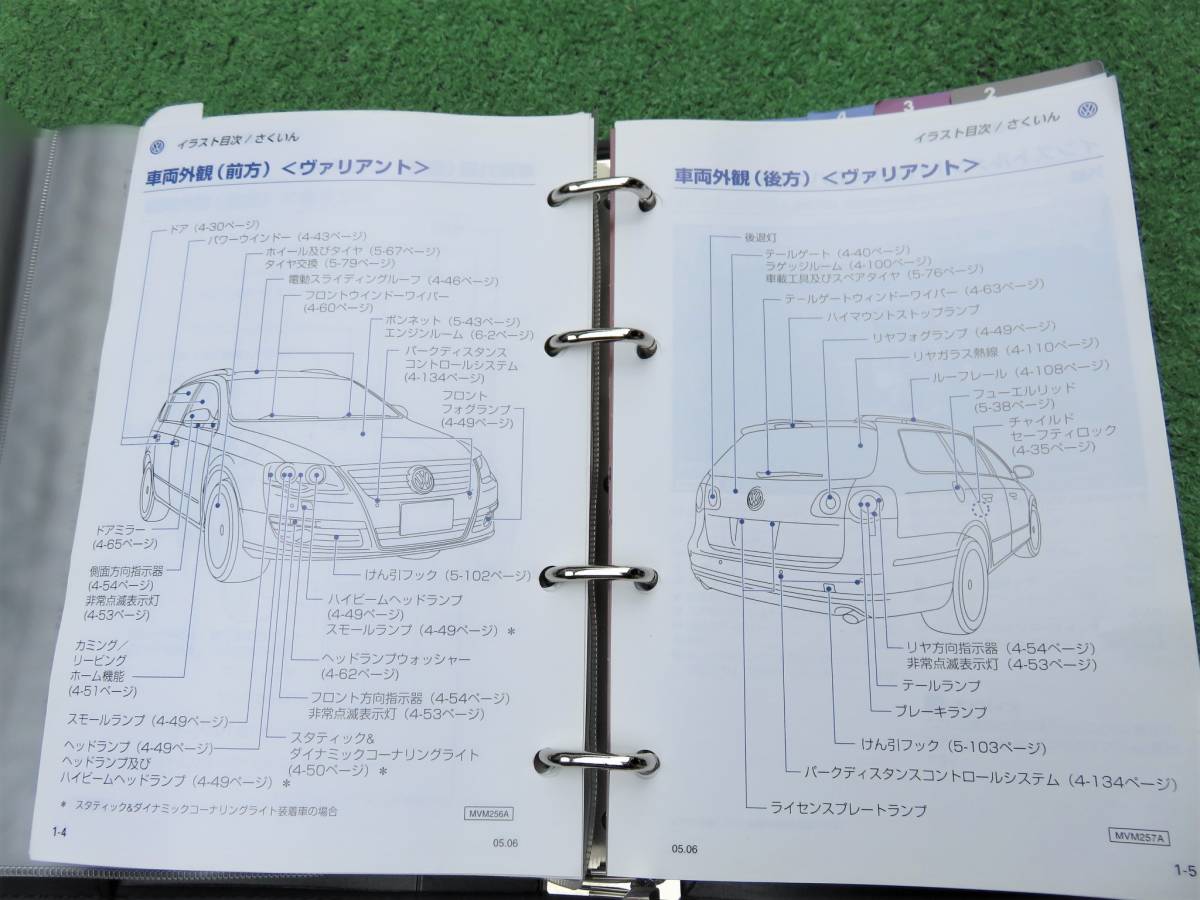 イラスト目次/さくいん
車両外観(前方)<ヴァリアント>
ドア(4-30ページ)
パワーウインドー(4-43ページ)
ホイール及びタイヤ(5-67ページ)
タイヤ交換(5-79ページ)
電動スライディングルーフ(4-46ページ)
フロントウインドーワイパー
(4-60ページ)
ボンネット(5-43ページ)
エンジンルーム(6-2ページ)
パークディスタンス
コントロールシステム
(4-134ページ)
フロント
フォグランプ
(4-49ページ)
ドアミラー
(4-65ページ)
側面方向指示器
(4-54ページ)
非常点滅表示灯
(4-53ページ)
カミング/
リービング
ホーム機能
(4-51ページ)
スモールランプ(4-49ページ)
ヘッドランプ(4-49ページ)
ヘッドランプ及び
ハイビームヘッドランプ(4-49ページ)*
けん引フック(5-102ページ)
ハイビームヘッドランプ
(4-49ページ)
スモールランプ(4-49ページ)*
ヘッドランプウォッシャー
(4-62ページ)
フロント方向指示器(4-54ページ)
非常点滅表示灯(4-53ページ)
スタティック&
ダイナミックコーナリングライト
(4-50ページ)*
* スタティック&ダイナミックコーナリングライト装着車の場合
MVM256A
1-4
05.06
4
3
2
イラスト目次/さくいん
車両外観(後方)<ヴァリアント>
後退灯
テールゲート(4-40ページ)
ラゲッジルーム(4-100ページ)
車載工具及びスペアタイヤ(5-76ページ)
テールゲートウィンドーワイパー(4-63ページ)
ハイマウントストップランプ
リヤフォグランプ(4-49ページ)
リヤガラス熱線(4-110ページ)
ルーフレール(4-108ページ)
フューエルリッド
(5-38ページ)
チャイルド
セーフティロック
(4-35ページ)
リヤ方向指示器(4-54ページ)
非常点滅表示灯(4-53ページ)
テールランプ
ブレーキランプ
けん引フック(5-103ページ)
パークディスタンスコントロールシステム(4-134ページ)
ライセンスプレートランプ
MVM257A
05.06
1-5